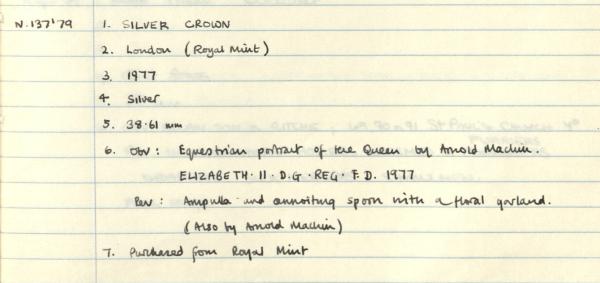 N.137'79 1. SILVER CROWN
2. London (Royal Mint)
3. 1977
4. Silver
5. 38.61 mm
6. Obv : Equestrian portrait of the Queen by Arnold Machin.
ELIZABETH · II · D.G · REG · F. D. 1977
Rev : Ampulla and annoiting spoon with a floral garland.
(Also by Arnold Machin)
7. Purchased from Royal Mint